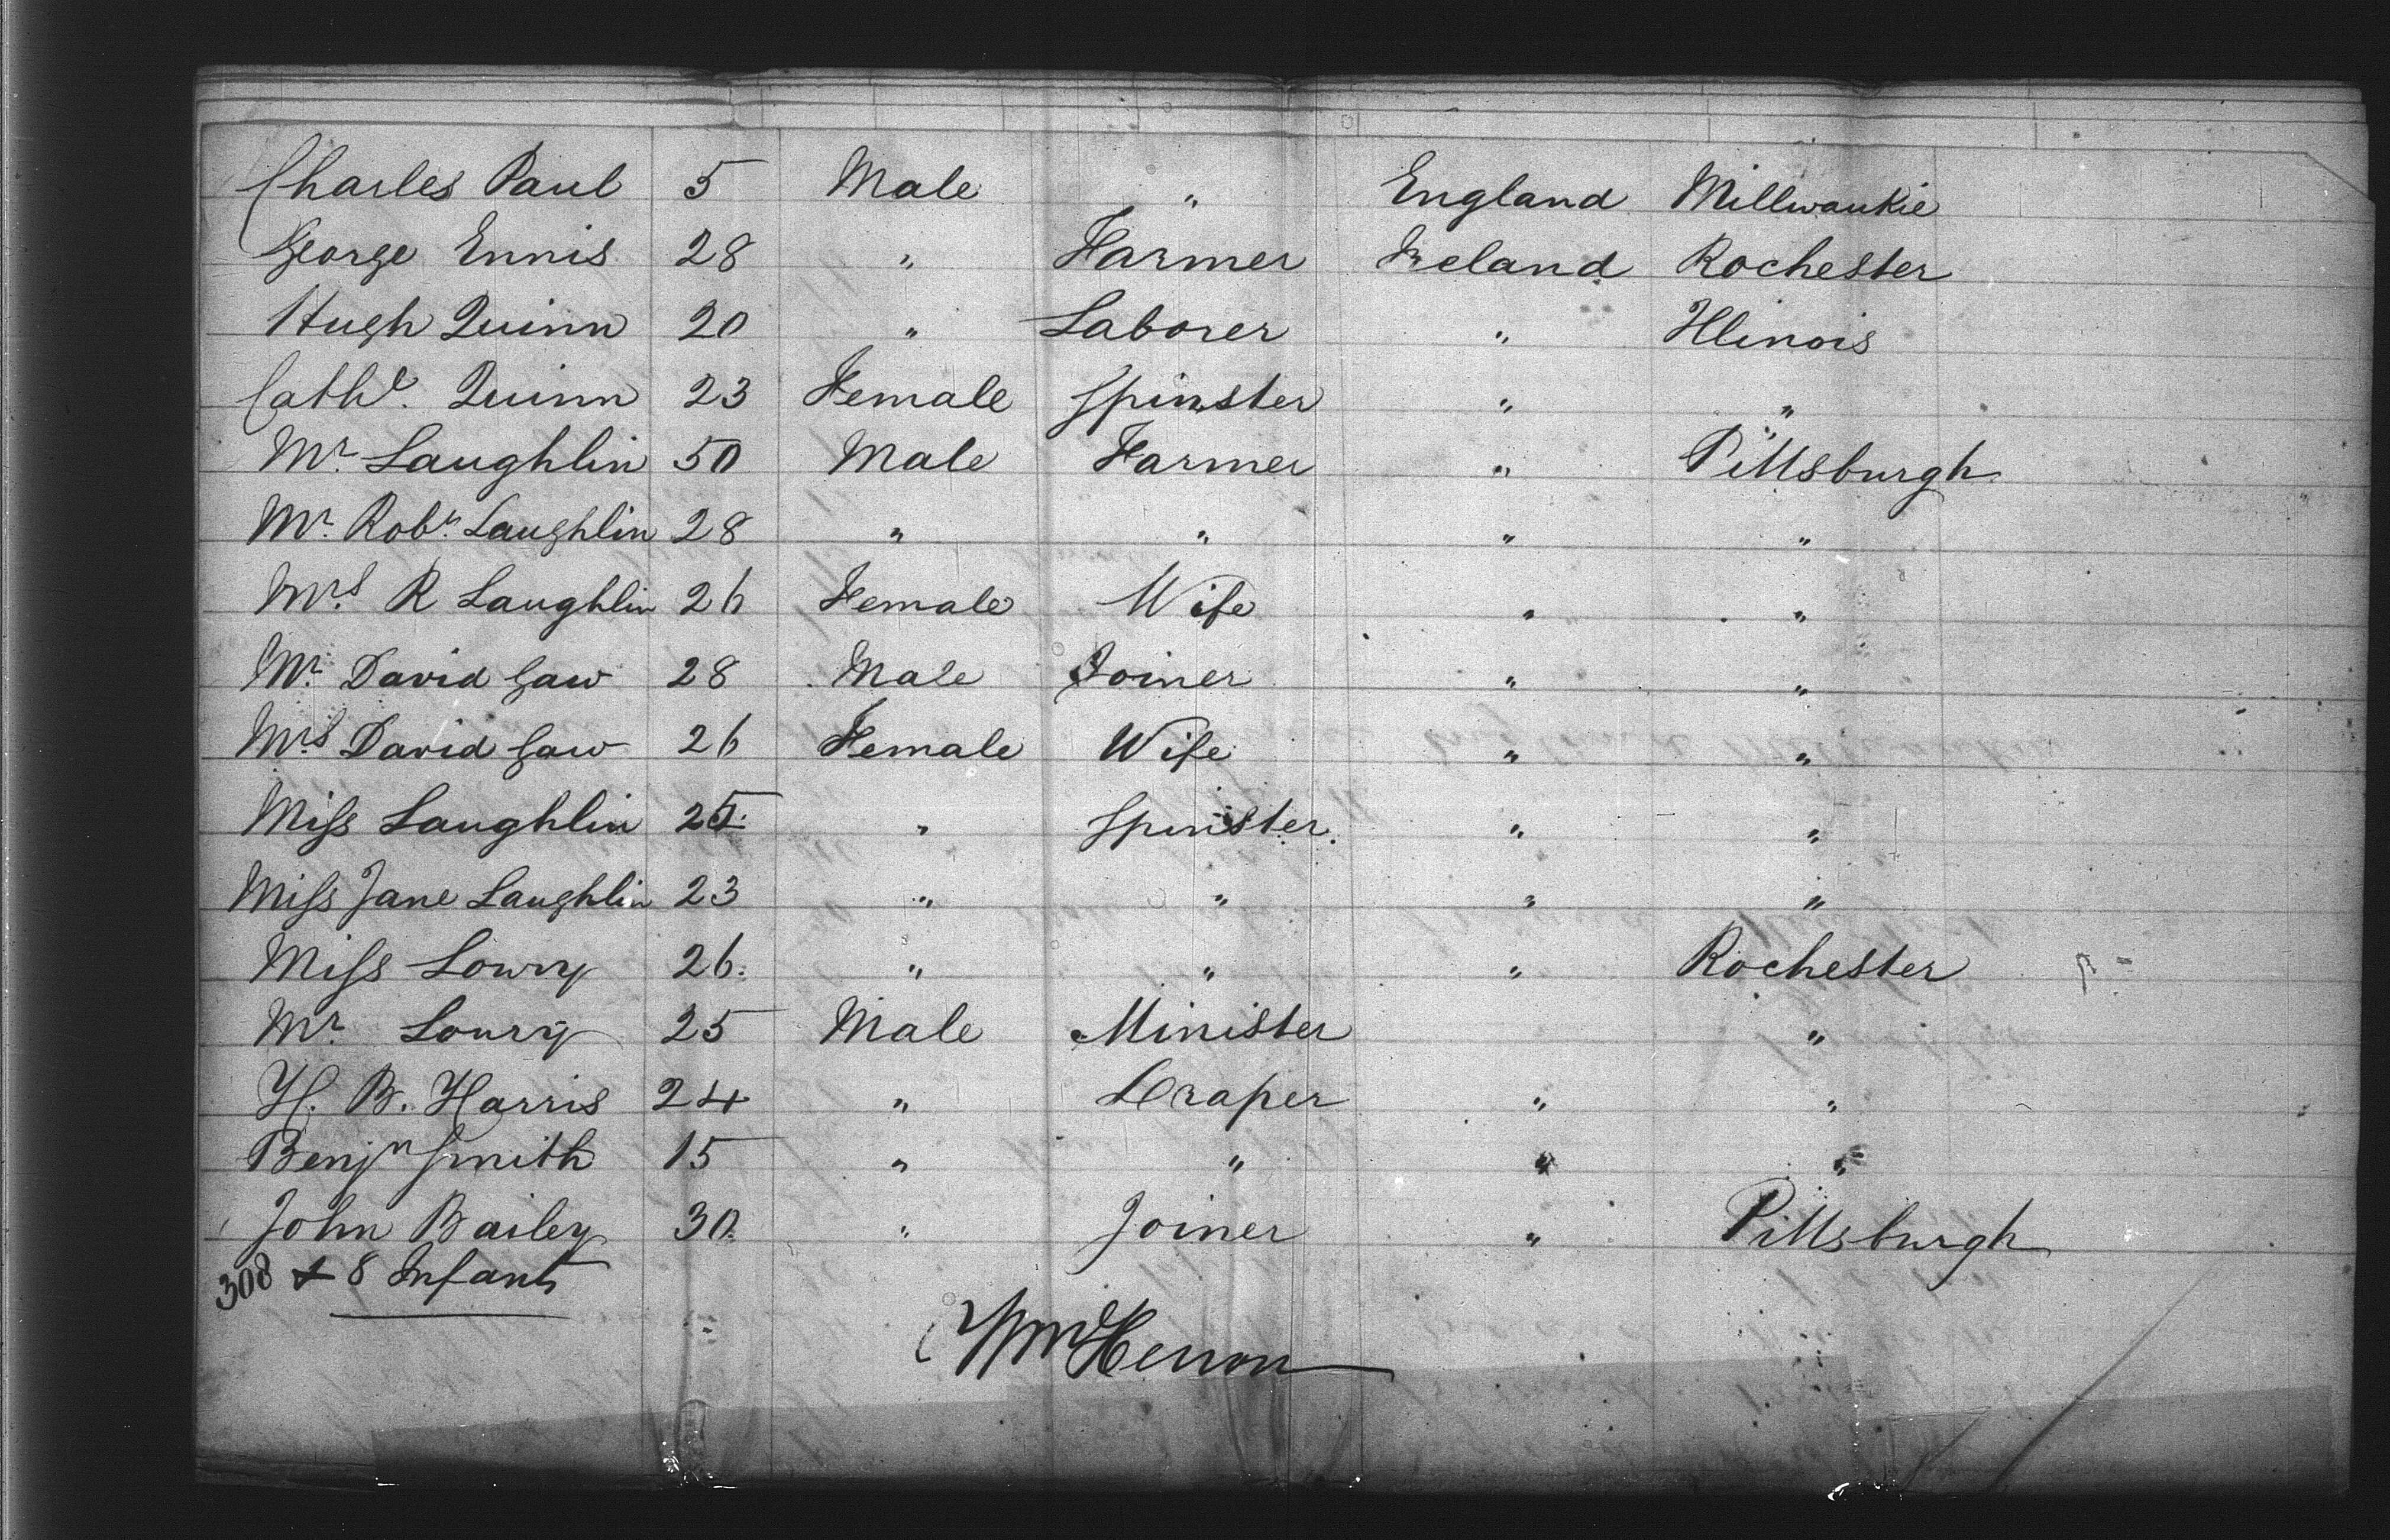 Charles Paul 5 Male " England Millwaukie
George Ennis 28 " Farmer Ireland Rochester
Hugh Quinn 20 " Laborer " Illinois
Cathe. Quinn 23 Female Spinster " "
Mr. Laughlin 50 Male Farmer " Pittsburgh
Mr. Robt. Laughlin 28 " " " "
Mrs. R Laughlin 26 Female Wife " "
Mr. David Gaw 28 Male Joiner " "
Mrs David Gaw 26 Female Wife " "
Miss Laughlin 25 " Spinster " "
Miss Jane Laughlin 23 " " " "
Miss Lowry 26 " " " Rochester
Mr. Lowry 25 Male Minister "
H. B. Harris 24 " Draper " "
Benjn Smith 15 " " " "
John Bailey 30 " Joiner " Pittsburgh
308 + 8 Infants